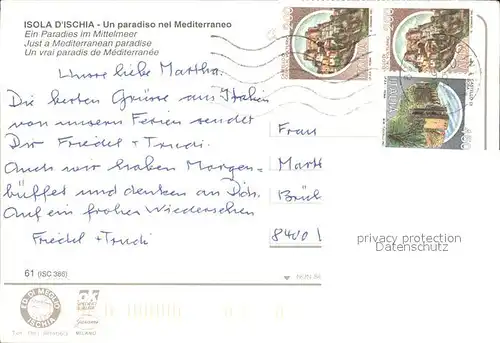 ISOLA D'ISCHIA - Un paradiso nel Mediterraneo
Ein Paradies im Mittelmeer
Just a Mediterranean paradise
Un vrai paradis de Méditerranée
Unsre liebe Martha.
Die besten Grüsse aus Italien
von unseren Ferien sendet
Dir Friedel + Trudi.
Auch wir haben Morgen-
büffet und denken an Dich.
Auf ein frohes Wiedersehen
Friedel + Trudi
Frau
Marth
Brüc
8400
privacy protection
Datenschutz
61 (ISC 386)
ED. DI MEGLIO
ISCHIA
MILANO